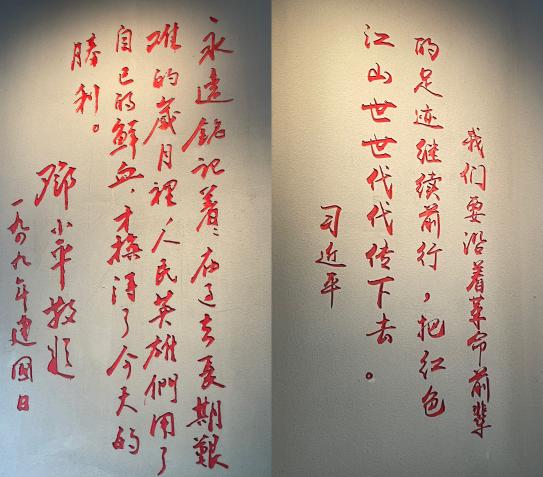 永遠銘记着：在过去長期艱
难的歲月裡人民英雄們用了
自己的鮮血，才換得了今天的
勝利。
鄧小平敬題
一九四九年建國日
我们要沿着革命前辈
的足迹继续前行，把红色
江山世世代代传下去。
习近平